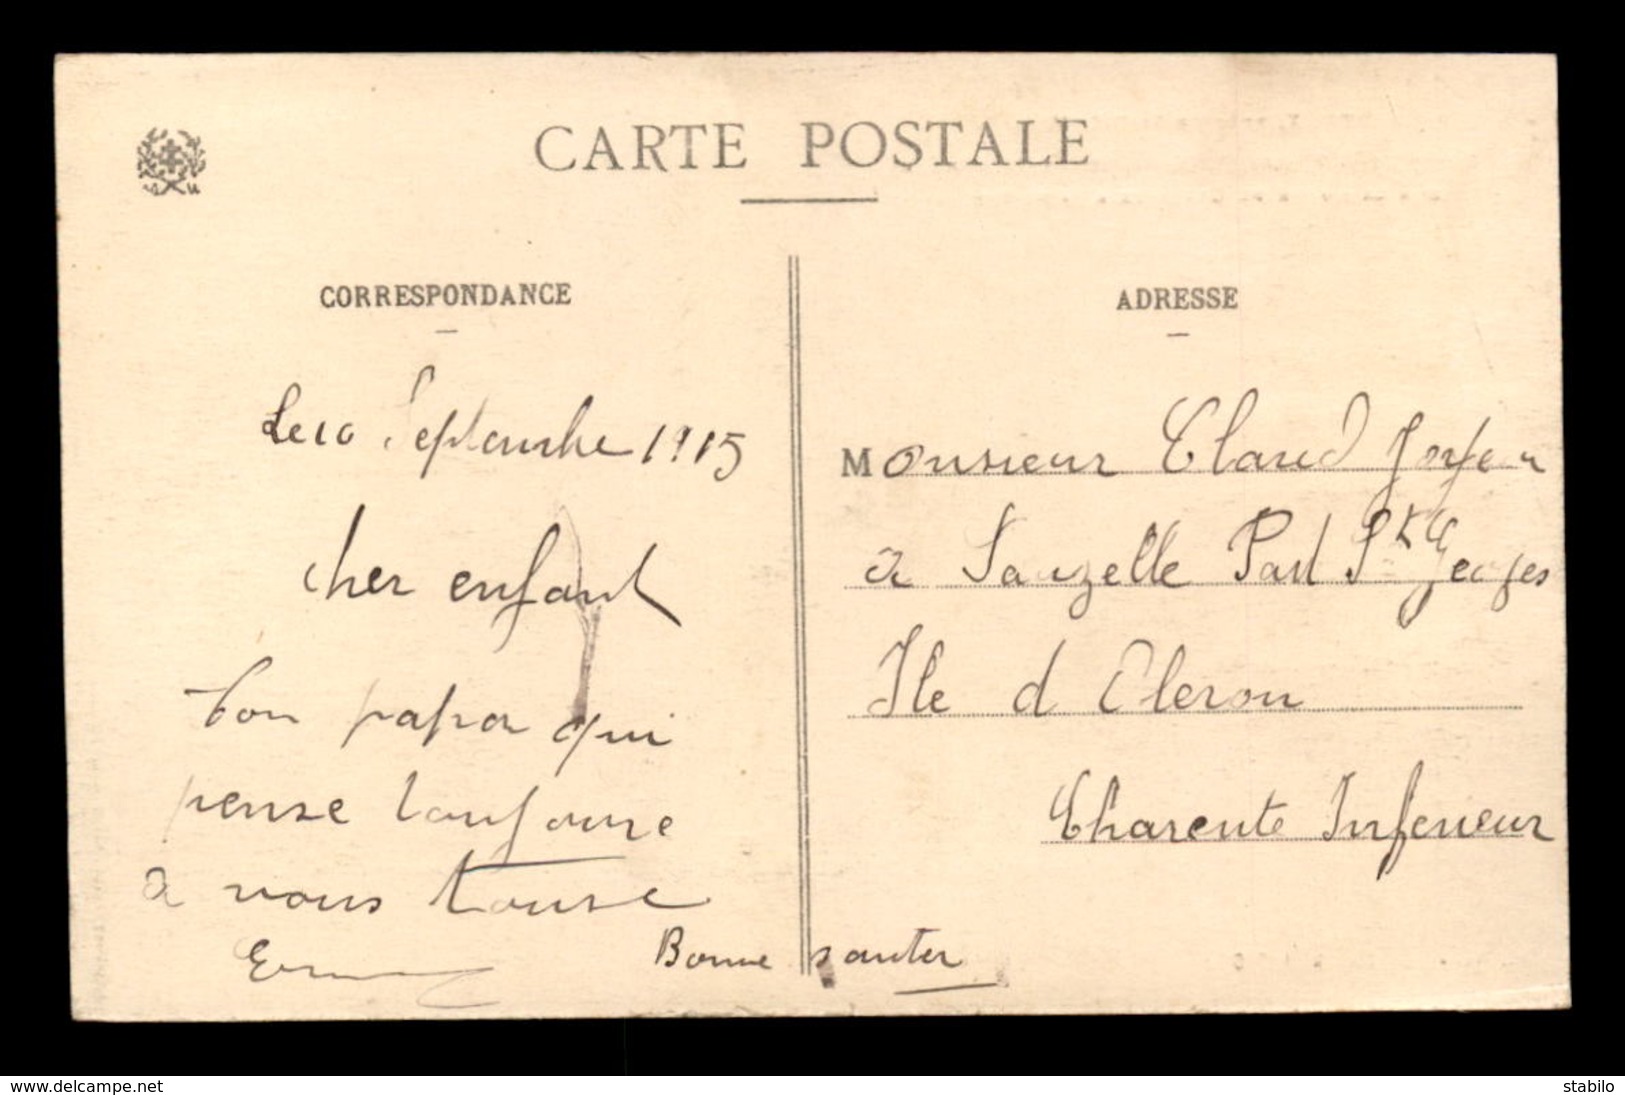 CARTE POSTALE
CORRESPONDANCE
Le 10 Septembre 1915
cher enfant
ton papa qui
pense toujoure
à vous touse
Bonne santer
ADRESSE
Monsieur Claud
à Sauzelle Part St Georges
Ile d Oleron
Charente Inferieur
www.delcampe.net
stabilo